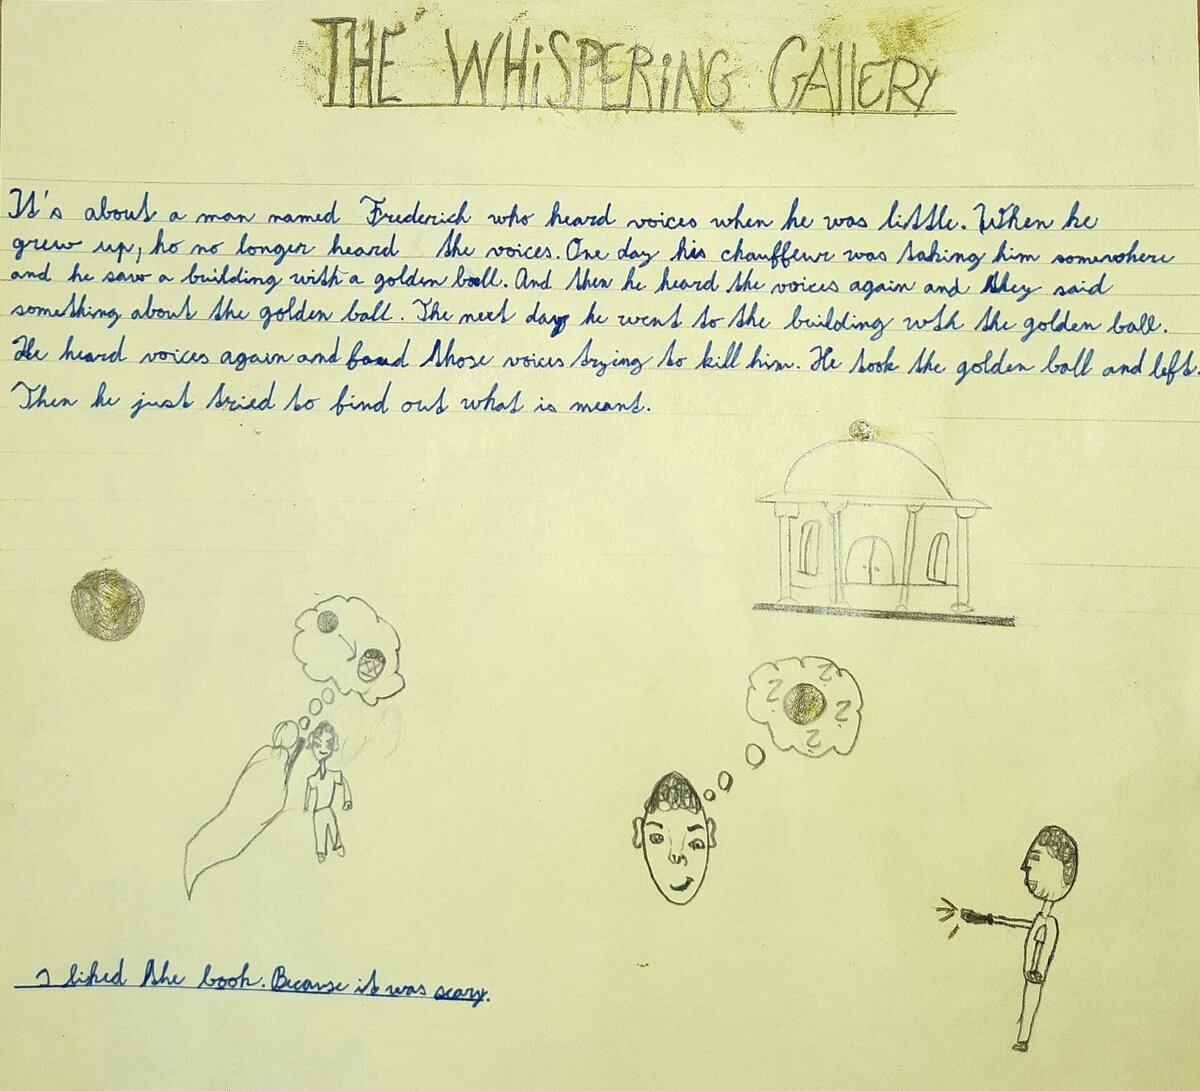 THE WHiSPERiNG GAllERY
It's about a man named Frederich who heard voices when he was little. When he
grew up, ho no longer heard the voices. One day his chauffeur was taking him somewhere
and he saw a building with a golden ball. And then he heard the voices again and they said
something about the golden ball. The next day he went to the building wth the golden ball.
He heard voices again and those voices trying to kill him. He took the golden ball and left.
Then he just tried to find out what is meant.
I liked the book. Because it was scary.